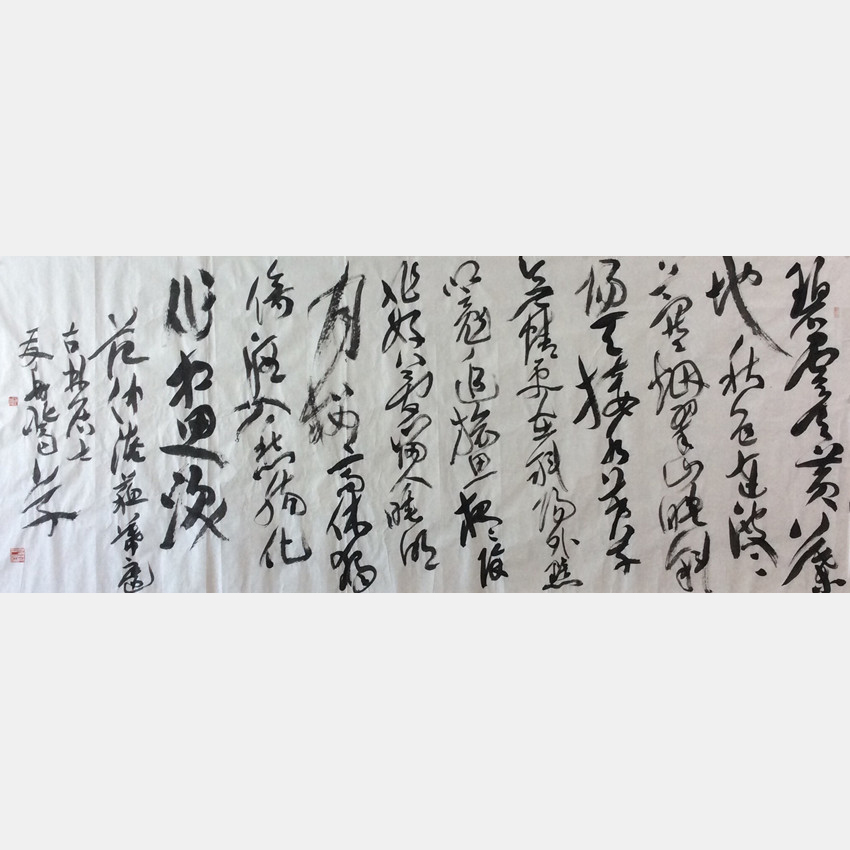 碧云天黄叶
地秋色连波波
上寒烟翠山映斜
阳天接水芳草
无情更在斜阳外黯
乡魂追旅思夜夜除
非好梦留人睡明
月楼高休独
倚酒入愁肠化
作相思泪
范仲淹苏幕遮
古林居士